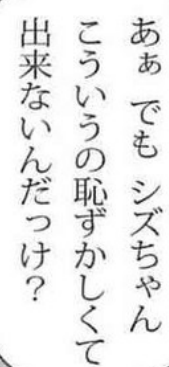 あぁ でも シズちゃん
こういうの恥ずかしくて
出来ないんだっけ？